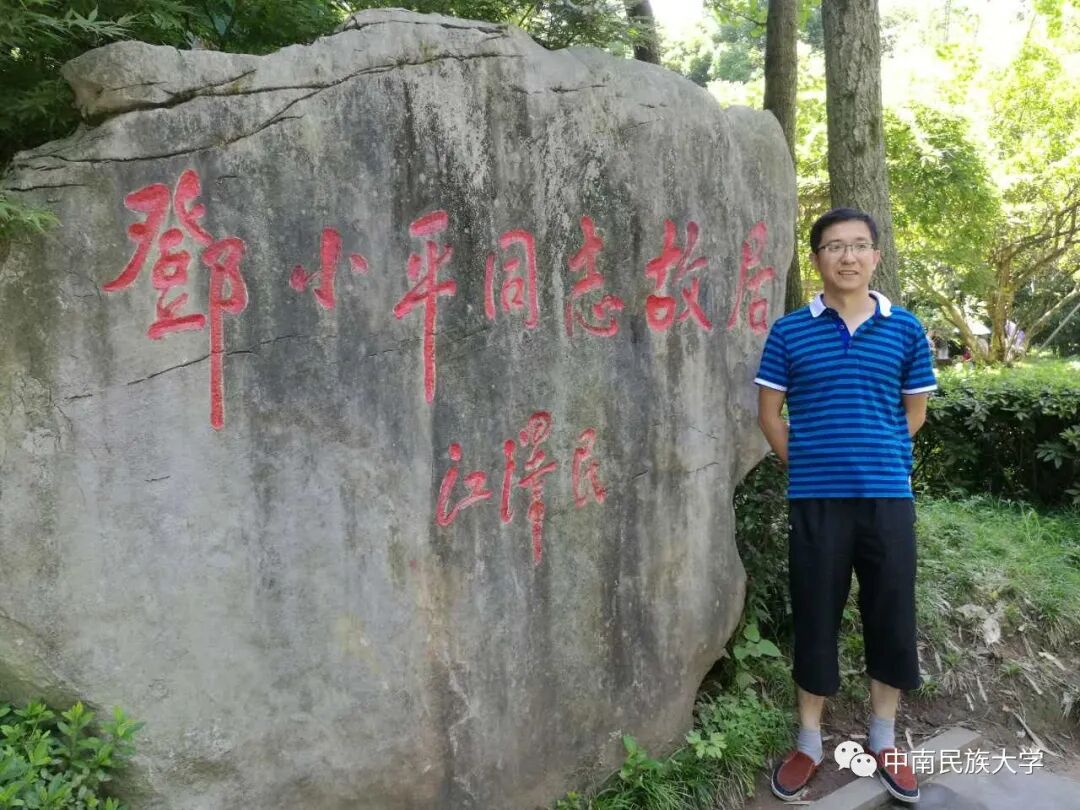 鄧小平同志故居
江澤民
中南民族大学